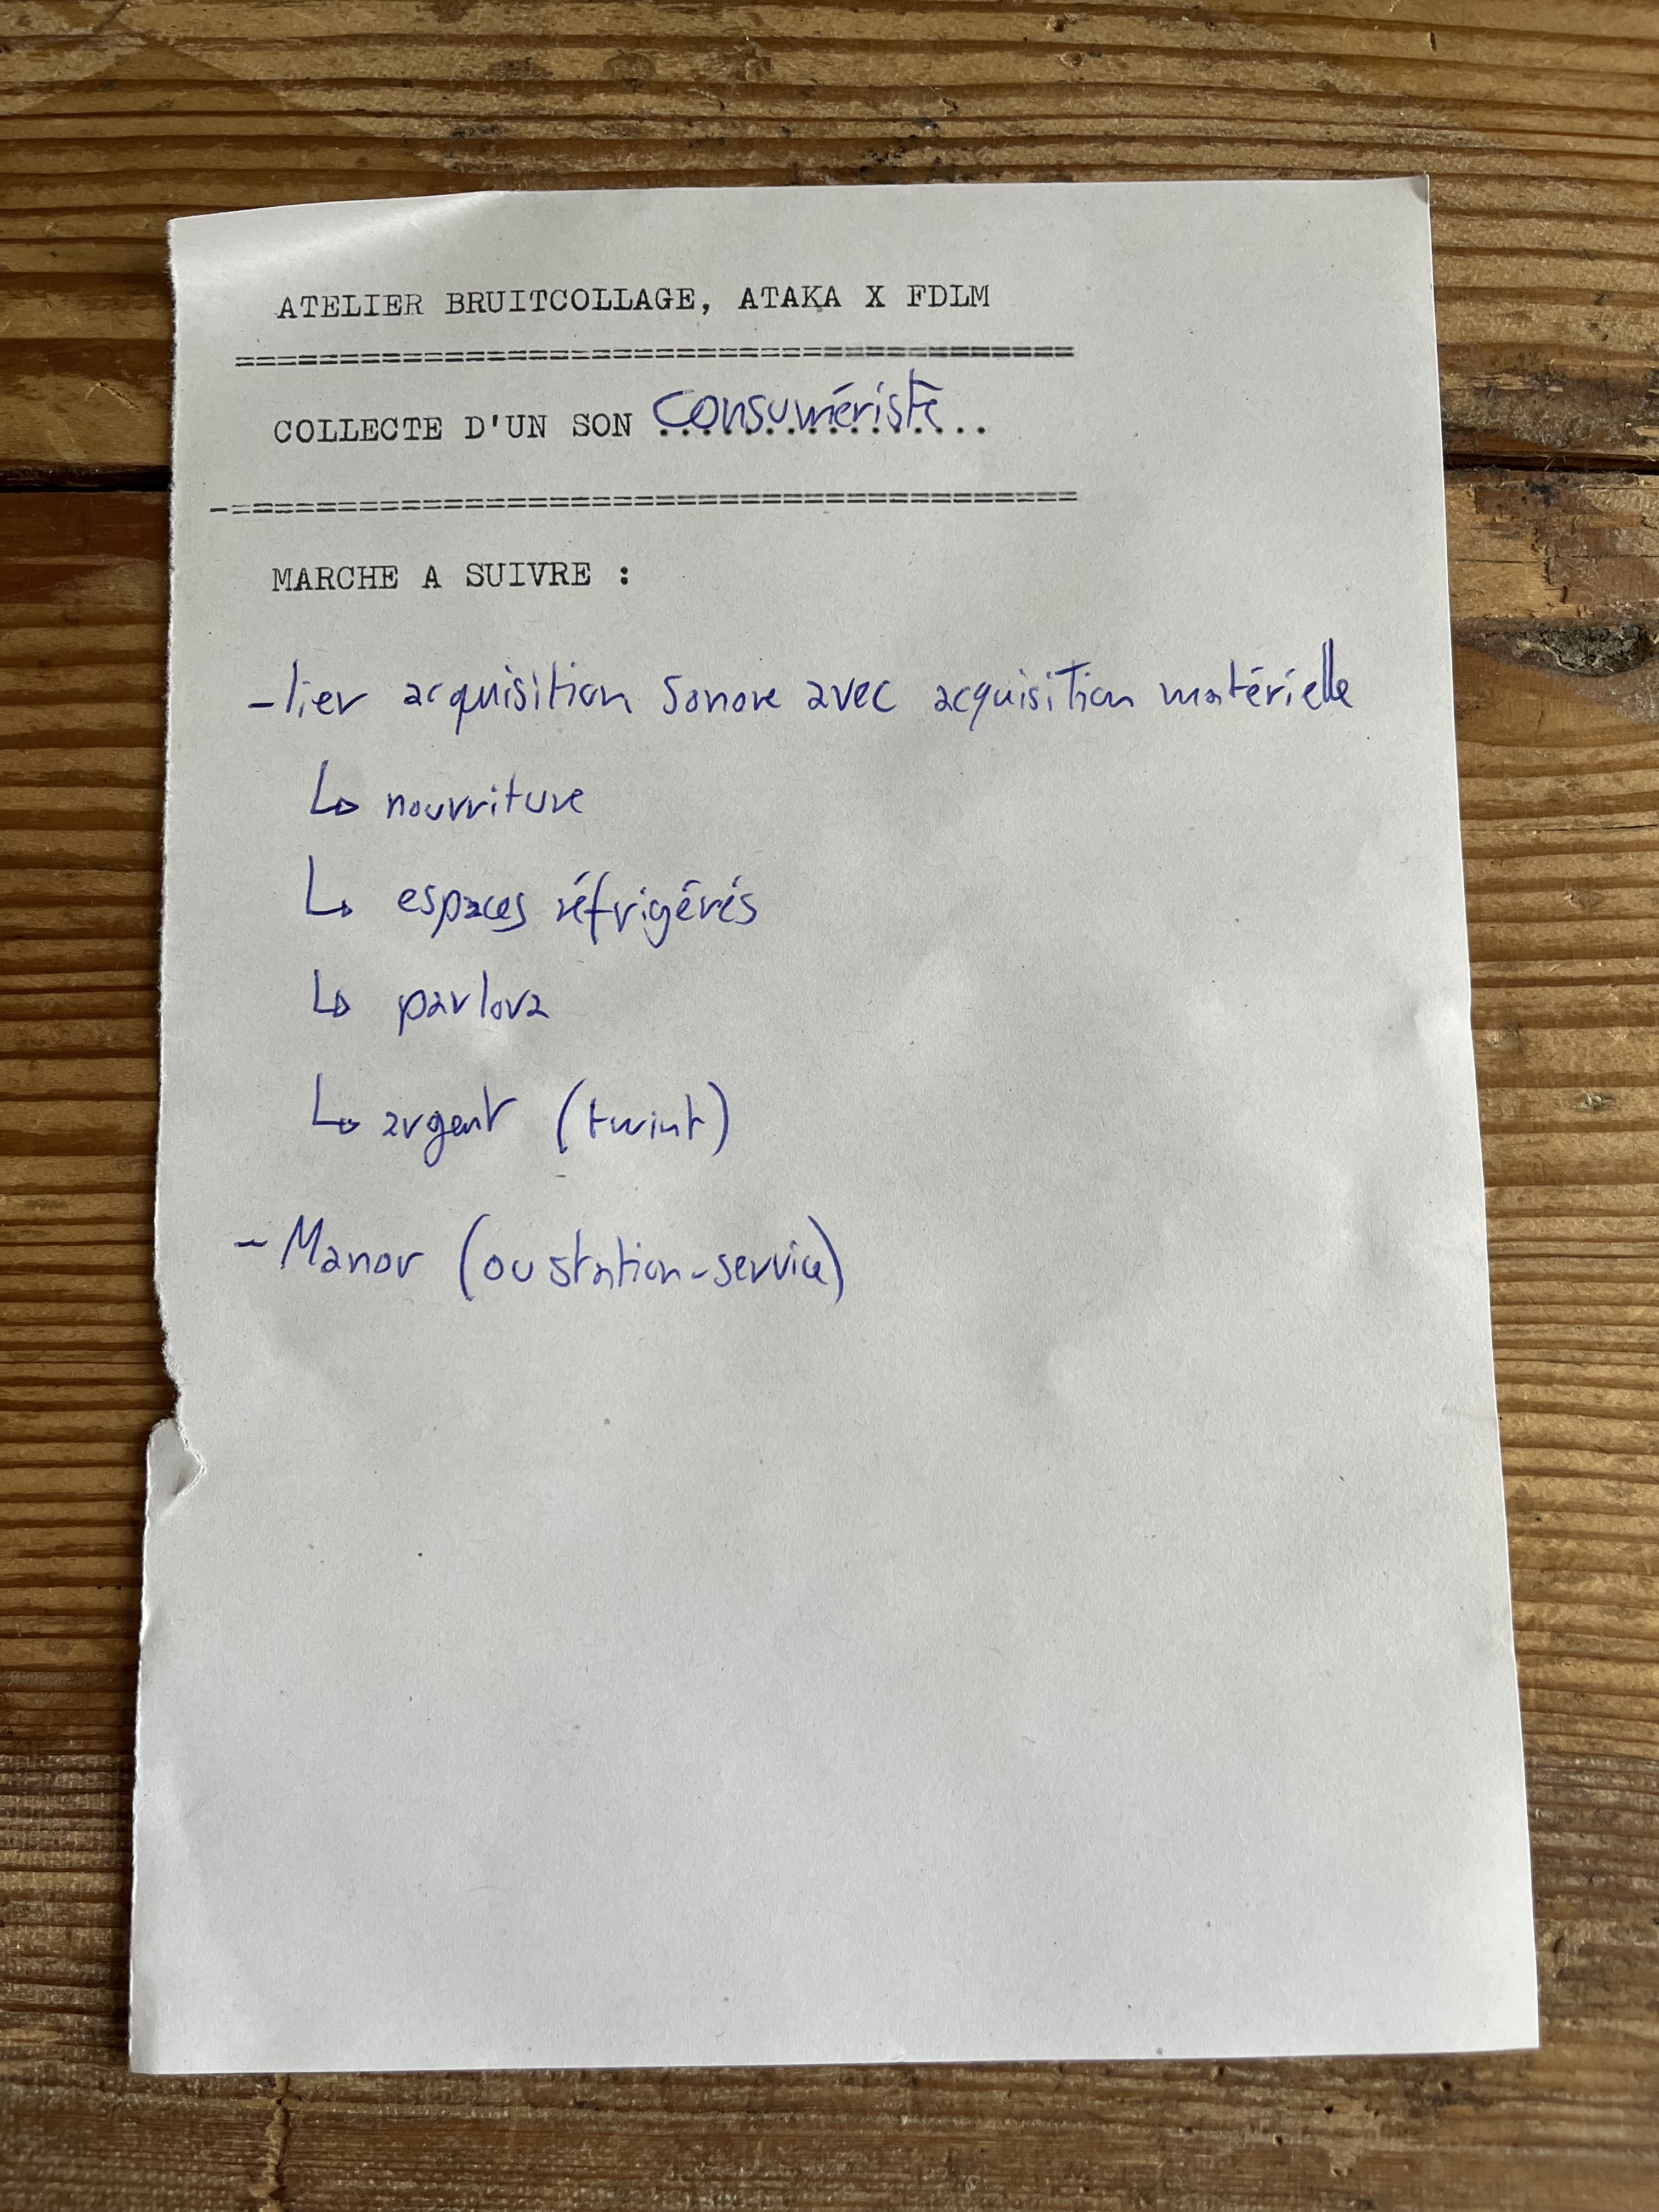 ATELIER BRUITCOLLAGE, ATAKA X FDLM
========================================
COLLECTE D'UN SON consumériste
-========================================
MARCHE A SUIVRE :
- lier acquisition sonore avec acquisition matérielle
↳ nourriture
↳ espaces réfrigérés
↳ pavlova
↳ argent (twint)
- Manor (ou station-service)